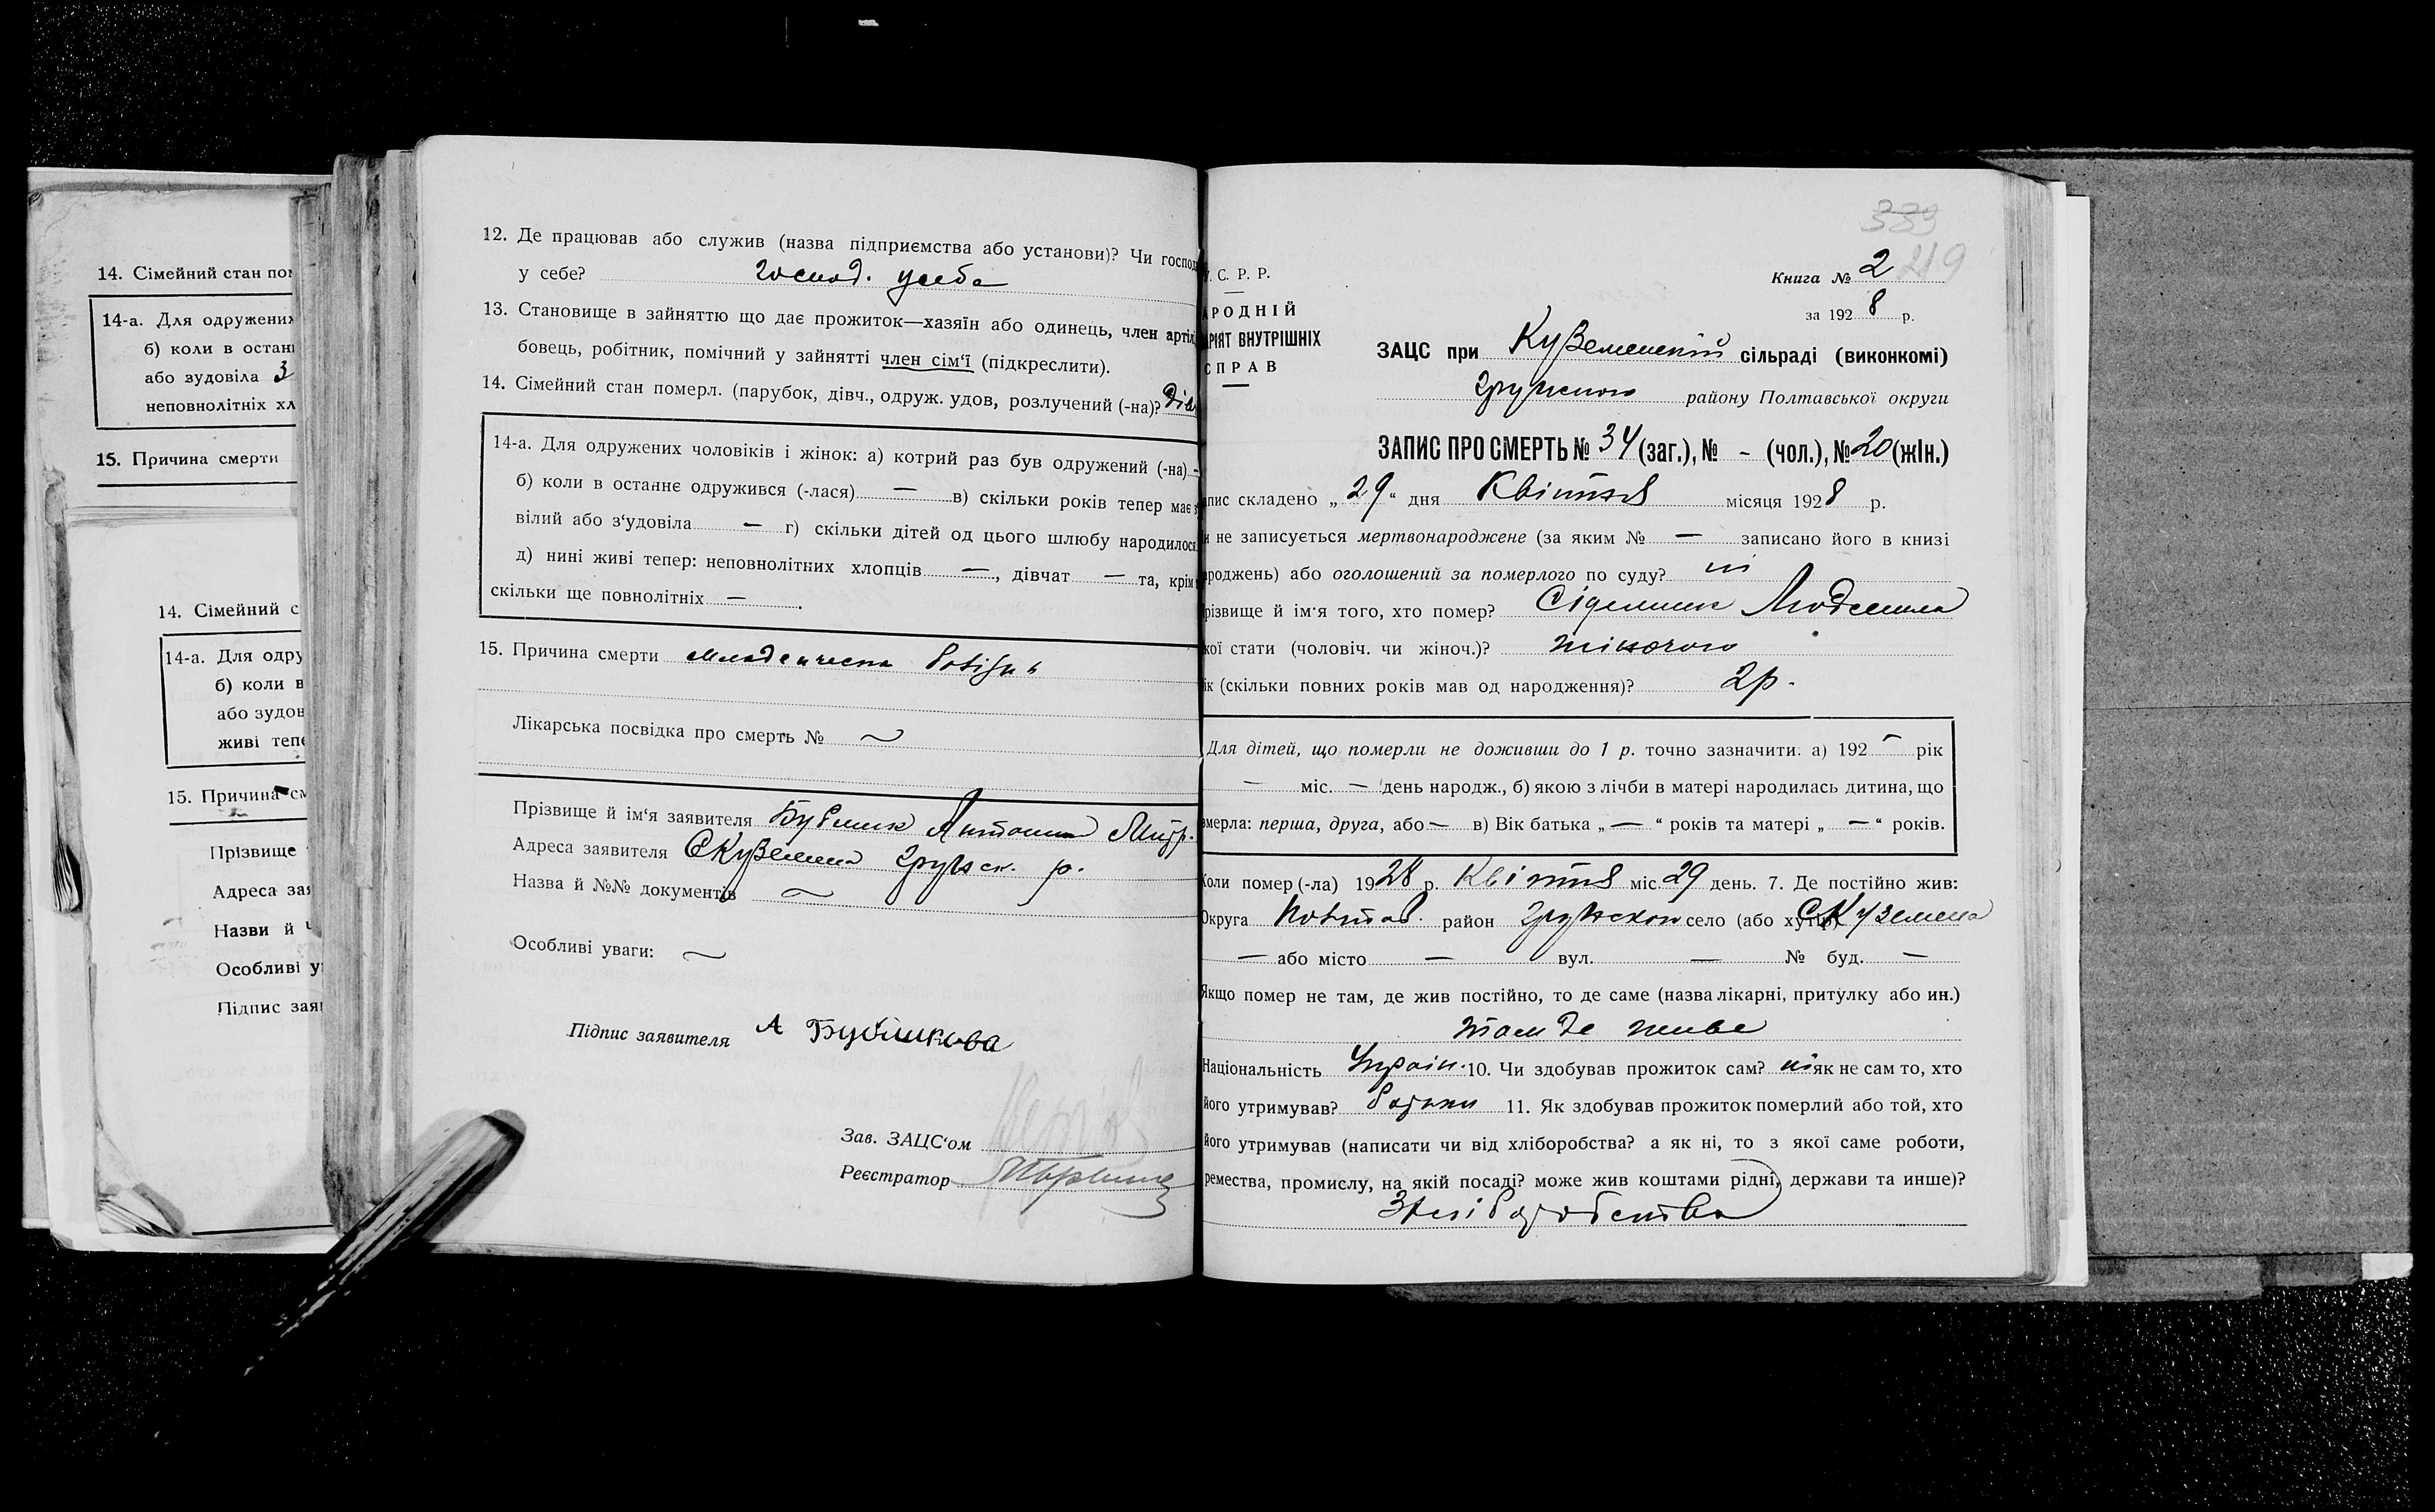 14. Сімейний стан пом
14-а. Для одружених
б) коли в останн
або зудовіла 3
неповнолітніх хл
15. Причина смерти
14. Сімейний с
14-а. Для одру
б) коли в
або зудов
живі тепе
15. Причина см
Прізвище
Адреса зая
Назви й
Особливі у
Підпис заяв
12. Де працював або служив (назва підприємства або установи)? Чи господ
у себе? господ. усебе
13. Становище в зайняттю що дає прожиток—хазяїн або одинець, член артіл
бовець, робітник, помічний у зайнятті член сім‘ї (підкреслити).
14. Сімейний стан померл. (парубок, дівч., одруж. удов, розлучений (-на)? дівч
14-а. Для одружених чоловіків і жінок: а) котрий раз був одружений (-на) —
б) коли в останнє одружився (-лася) — в) скільки років тепер має з
вілий або з‘удовіла — г) скільки дітей од цього шлюбу народилося
д) нині живі тепер: неповнолітних хлопців —, дівчат — та, крім
скільки ще повнолітніх — .
15. Причина смерти
Лікарська посвідка про смерть № ~
Прізвище й ім‘я заявителя Бублик Антонина Митр.
Адреса заявителя С Куземена Грунск. р.
Назва й №№ документів ~
Особливі уваги: ~
Підпис заявителя А Бубликова
Зав. ЗАЦС‘ом
Реєстратор
У. С. Р. Р.
АРОДНІЙ
АРІЯТ ВНУТРІШНІХ
СПРАВ
339
219
Книга № 2
за 1928 р.
ЗАЦС при Куземенській сільраді (виконкомі)
Грунского району Полтавської округи
ЗАПИС ПРО СМЕРТЬ № 34 (заг.), № - (чол.), № 20 (жін.)
апис складено „29“ дня Квітня місяця 1928 р.
и не записується мертвонароджене (за яким № — записано його в книзі
ароджень) або оголошений за померлого по суду? ні
різвище й ім‘я того, хто помер? Людмила
кої стати (чоловіч. чи жіноч.)? жіночого
ік (скільки повних років мав од народження)? 2р.
Для дітей, що померли не доживши до 1 р. точно зазначити: а) 192 - рік
— міс. — день народж., б) якою з лічби в матері народилась дитина, що
вмерла: перша, друга, або — в) Вік батька „ — “ років та матері „ — “ років.
Коли помер (-ла) 1928 р. Квітня міс. 29 день. 7. Де постійно жив:
Округа Полтав. район Грунского село (або хутір) С Куземена
— або місто — вул. — № буд. —
Якщо помер не там, де жив постійно, то де саме (назва лікарні, притулку або ин.)
там де живе
Національність Україн. 10. Чи здобував прожиток сам? ні як не сам то, хто
його утримував? батьки 11. Як здобував прожиток померлий або той, хто
його утримував (написати чи від хліборобства? а як ні, то з якої саме роботи,
ремества, промислу, на якій посаді? може жив коштами рідні, держави та инше)?
З хліборобства